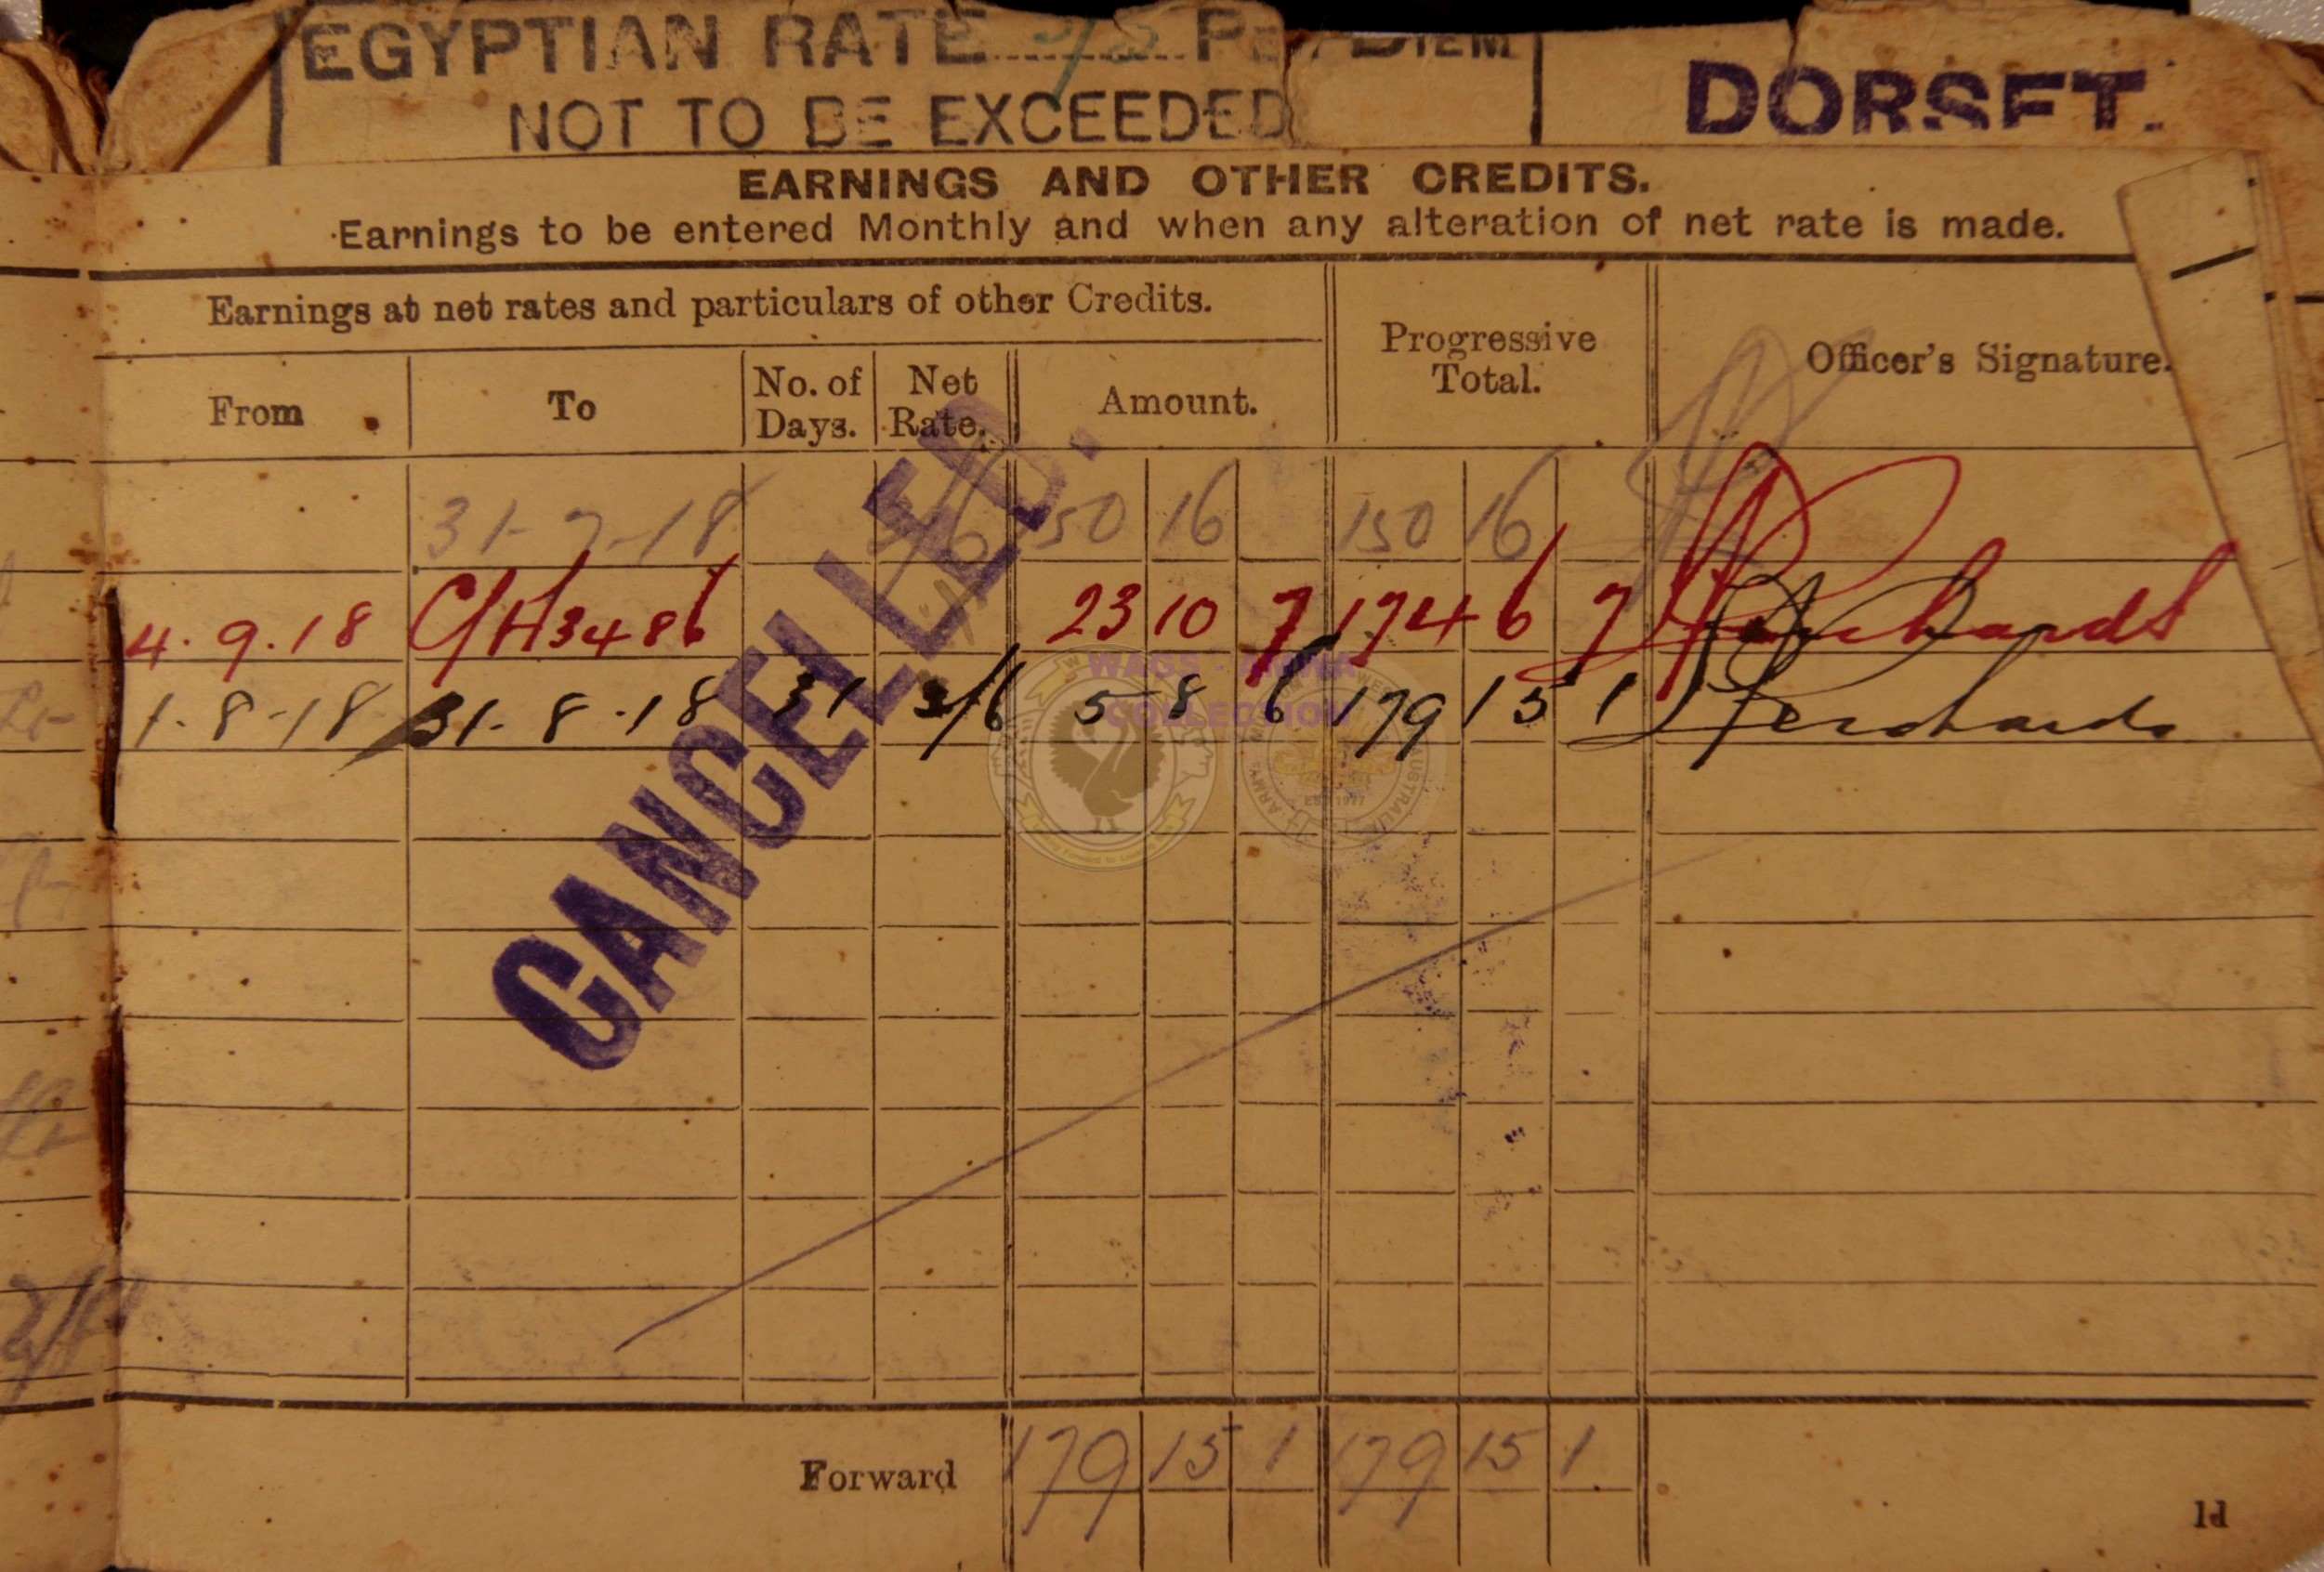 EGYPTIAN RATE PER DIEM
NOT TO BE EXCEEDED
DORSET.
EARNINGS AND OTHER CREDITS.
Earnings to be entered Monthly and when any alteration of net rate is made.
Earnings at net rates and particulars of other Credits.
Progressive Total.
Officer's Signature.
From To No. of Days. Net Rate. Amount.
31-7-18 3/6 150 16 150 16
4.9.18 C/H3486 23 10 7 174 6 7
1-8-18 31-8-18 31 3/6 5 8 6 179 15 1
CANCELLED.
WAGS
COLLECTION
Forward 179 15 1 179 15 1
1d